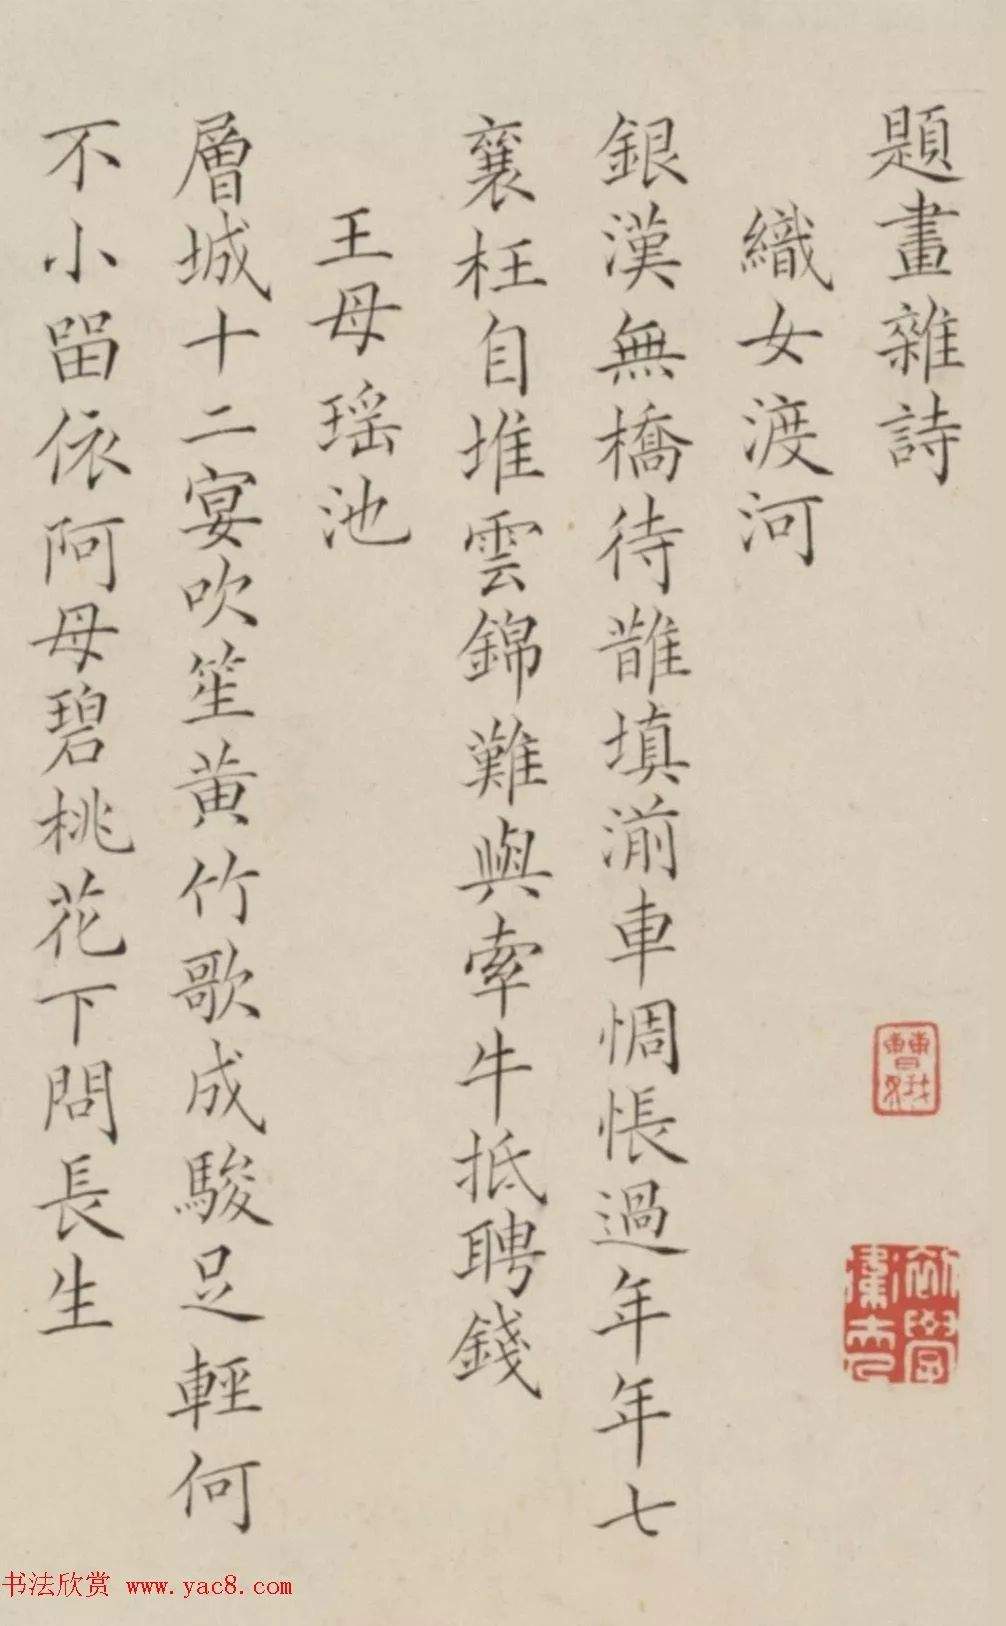 題畫雜詩
織女渡河
銀漢無橋待鵲填湔車惆悵過年年七
襄枉自堆雲錦難與牽牛抵聘錢
王母瑤池
層城十二宴吹笙黃竹歌成駿足輕何
不小留依阿母碧桃花下問長生
书法欣赏 www.yac8.com